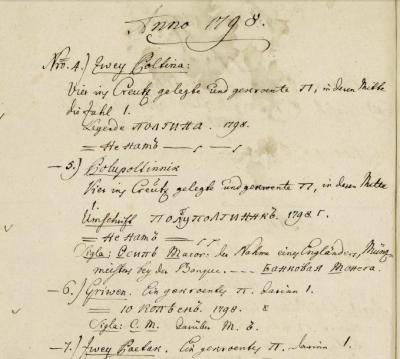 Anno 1798.
Nro. 4.) Zwey Poltina:
Vier ins Creutz gelegte und gekroente П, in deren Mitte
die Zahl 1.
Legende ПОЛТИНА. 1798.
= НЕ НАМЪ — —
— 5.) Polupoltinnik
Vier ins Creutz gelegte und gekroente П, in deren Mitte
1.
Umschrift ПОЛУПОЛТИННКЪ. 1798 Г.
= НЕ НАМЪ =
Sigla: der Nahme eines Engländers, Münz-
meisters bey der Banque. — — — БАНКОВАЯ МОНЕТА.
— 6.) Griwen. Ein gekroentes П. darinn 1.
= 10 КОПѢЕКЪ. 1798.
Sigla: С. М. darüber М. Б.
— 7.) Zwey Paetak. Ein gekroentes П. darinn 1.